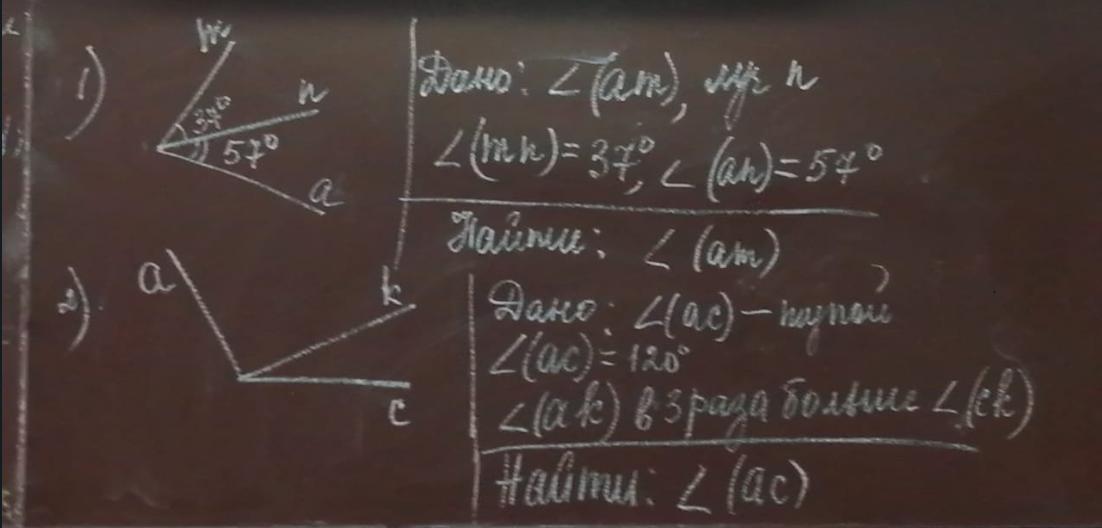 1)
m
n
37°
57°
a
Дано: ∠(am), луч n
∠(mn)=37°, ∠(an)=57°
Найти: ∠(am)
2)
a
k
c
Дано: ∠(ac) — тупой
∠(ac)=120°
∠(ak) в 3 раза больше ∠(ck)
Найти: ∠(ac)